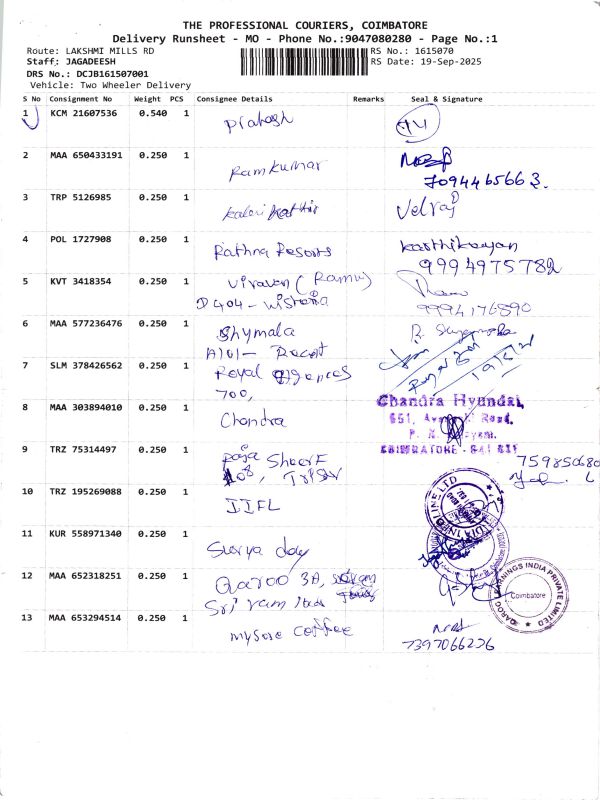 THE PROFESSIONAL COURIERS, COIMBATORE
Delivery Runsheet - MO - Phone No.:9047080280 - Page No.:1
Route: LAKSHMI MILLS RD
RS No.: 1615070
Staff: JAGADEESH
RS Date: 19-Sep-2025
DRS No.: DCJB161507001
Vehicle: Two Wheeler Delivery
S No Consignment No Weight PCS Consignee Details Remarks Seal & Signature
1 KCM 21607536 0.540 1 Prakash
2 MAA 650433191 0.250 1 Ramkumar
7094465663.
3 TRP 5126985 0.250 1 Velraj
4 POL 1727908 0.250 1 Rathna Resorts Karthikeyan
9994975782
5 KVT 3418354 0.250 1 Viravan (Ramu)
D404- Wistaria 9994176890
6 MAA 577236476 0.250 1 Shymala
A101-
7 SLM 378426562 0.250 1 Royal agences
700,
8 MAA 303894010 0.250 1 Chandra
Chandra Hyundai,
COIMBATORE
9 TRZ 75314497 0.250 1
108,
10 TRZ 195269088 0.250 1 IIFL
11 KUR 558971340 0.250 1 Surya day
12 MAA 652318251 0.250 1 Qaroo 3A,
Sri ram
EARNINGS INDIA PRIVATE LIMITED
Coimbatore
13 MAA 653294514 0.250 1 mysore coffee
7397066236